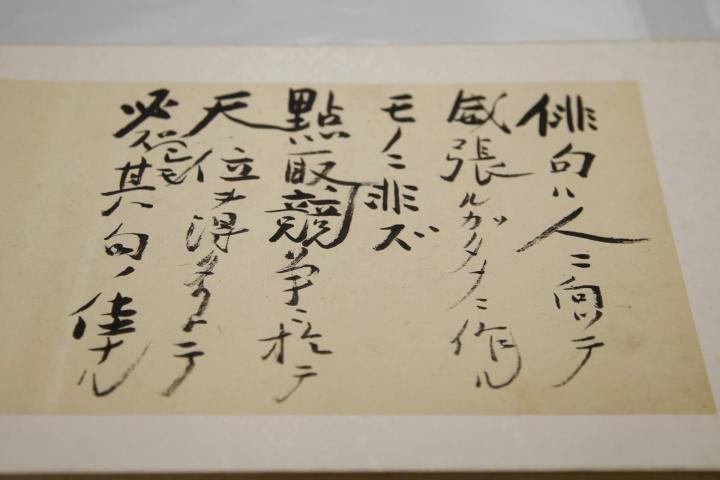 俳句ハ人ニ向ッテ
威張ルガタメニ作ル
モノニ非ズ
點取競争ニ於テ
天位ヲ得トテ
必ズシモ其句ノ佳ナル